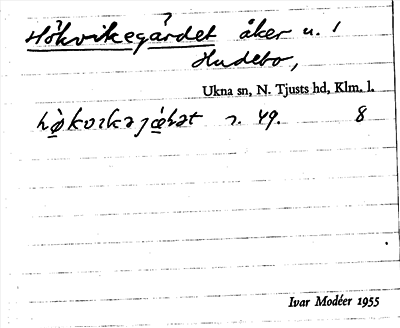 Hökvikegärdet åker u. 1
Hudebo,
Ukna sn, N. Tjusts hd, Klm. l.
hø̀kvıkəjæ̀ḍət n. 49. 8
Ivar Modéer 1955